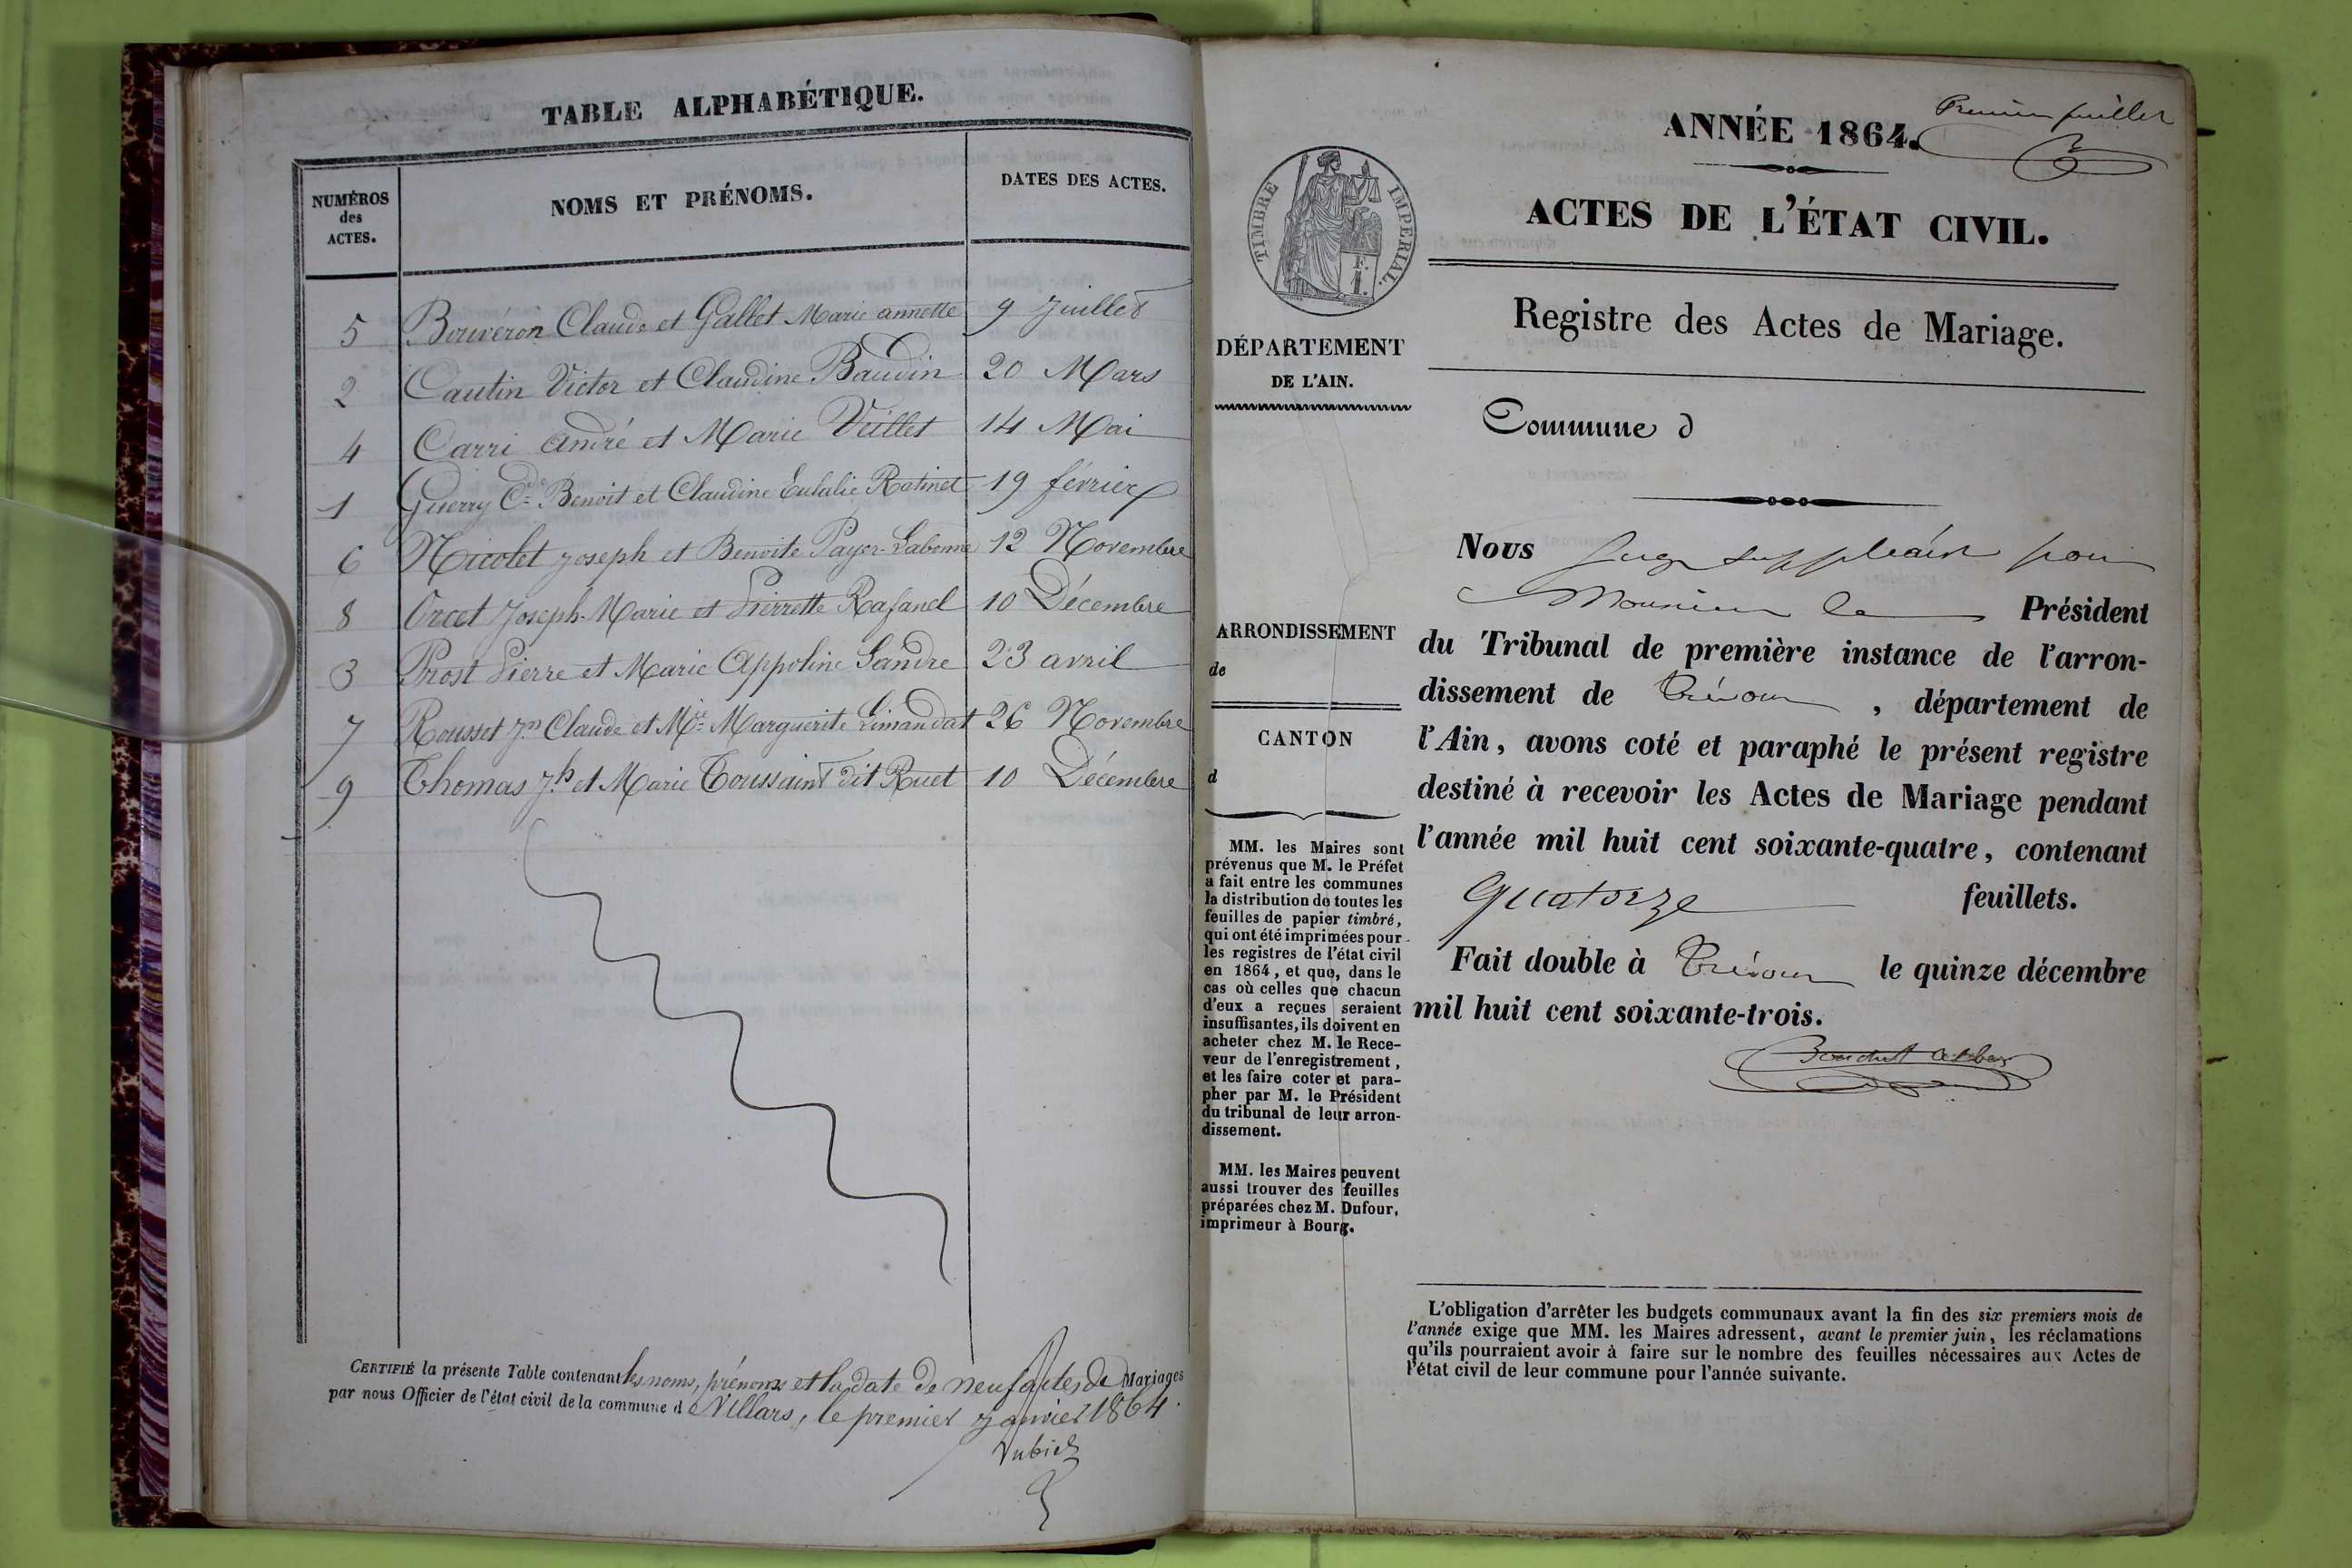 TABLE ALPHABÉTIQUE.
NUMÉROS
des
ACTES.
NOMS ET PRÉNOMS.
DATES DES ACTES.
5 Bouvéron Claude et Gallet Marie annette 9 Juillet
2 Cautin Victor et Claudine Baudin 20 Mars
4 Carri andré et Marie Veillet 14 Mai
1 Guerry Cde Benoit et Claudine Eulalie Ratinet 19 février
6 Nicolet Joseph et Benoite Payor-Labonne 12 Novembre
8 Orcet Joseph-Marie et Pierrette Rafanel 10 Décembre
3 Prost Pierre et Marie Appoline Sandre 23 avril
7 Rousset Jn Claude et Mie Marguerite Limandat 26 Novembre
9 Thomas Jh et Marie Toussaint dit Ruet 10 Décembre
CERTIFIÉ la présente Table contenant les noms, prénoms et la date de neuf actes de Mariages
par nous Officier de l'état civil de la commune de Villars, le premier janvier 1864.
Premier feuillet
ANNÉE 1864.
TIMBRE IMPÉRIAL.
F.
1.
ACTES DE L'ÉTAT CIVIL.
Registre des Actes de Mariage.
DÉPARTEMENT
DE L'AIN.
Commune d
ARRONDISSEMENT
de
CANTON
d
MM. les Maires sont
prévenus que M. le Préfet
a fait entre les communes
la distribution de toutes les
feuilles de papier timbré,
qui ont été imprimées pour
les registres de l'état civil
en 1864, et que, dans le
cas où celles que chacun
d'eux a reçues seraient
insuffisantes, ils doivent en
acheter chez M. le Rece-
veur de l'enregistrement,
et les faire coter et para-
pher par M. le Président
du tribunal de leur arron-
dissement.
MM. les Maires peuvent
aussi trouver des feuilles
préparées chez M. Dufour,
imprimeur à Bourg.
Nous Juge suppléant pour
Monsieur le Président
du Tribunal de première instance de l'arron-
dissement de Trévoux, département de
l'Ain, avons coté et paraphé le présent registre
destiné à recevoir les Actes de Mariage pendant
l'année mil huit cent soixante-quatre, contenant
quatorze feuillets.
Fait double à Trévoux le quinze décembre
mil huit cent soixante-trois.
L'obligation d'arrêter les budgets communaux avant la fin des six premiers mois de
l'année exige que MM. les Maires adressent, avant le premier juin, les réclamations
qu'ils pourraient avoir à faire sur le nombre des feuilles nécessaires aux Actes de
l'état civil de leur commune pour l'année suivante.